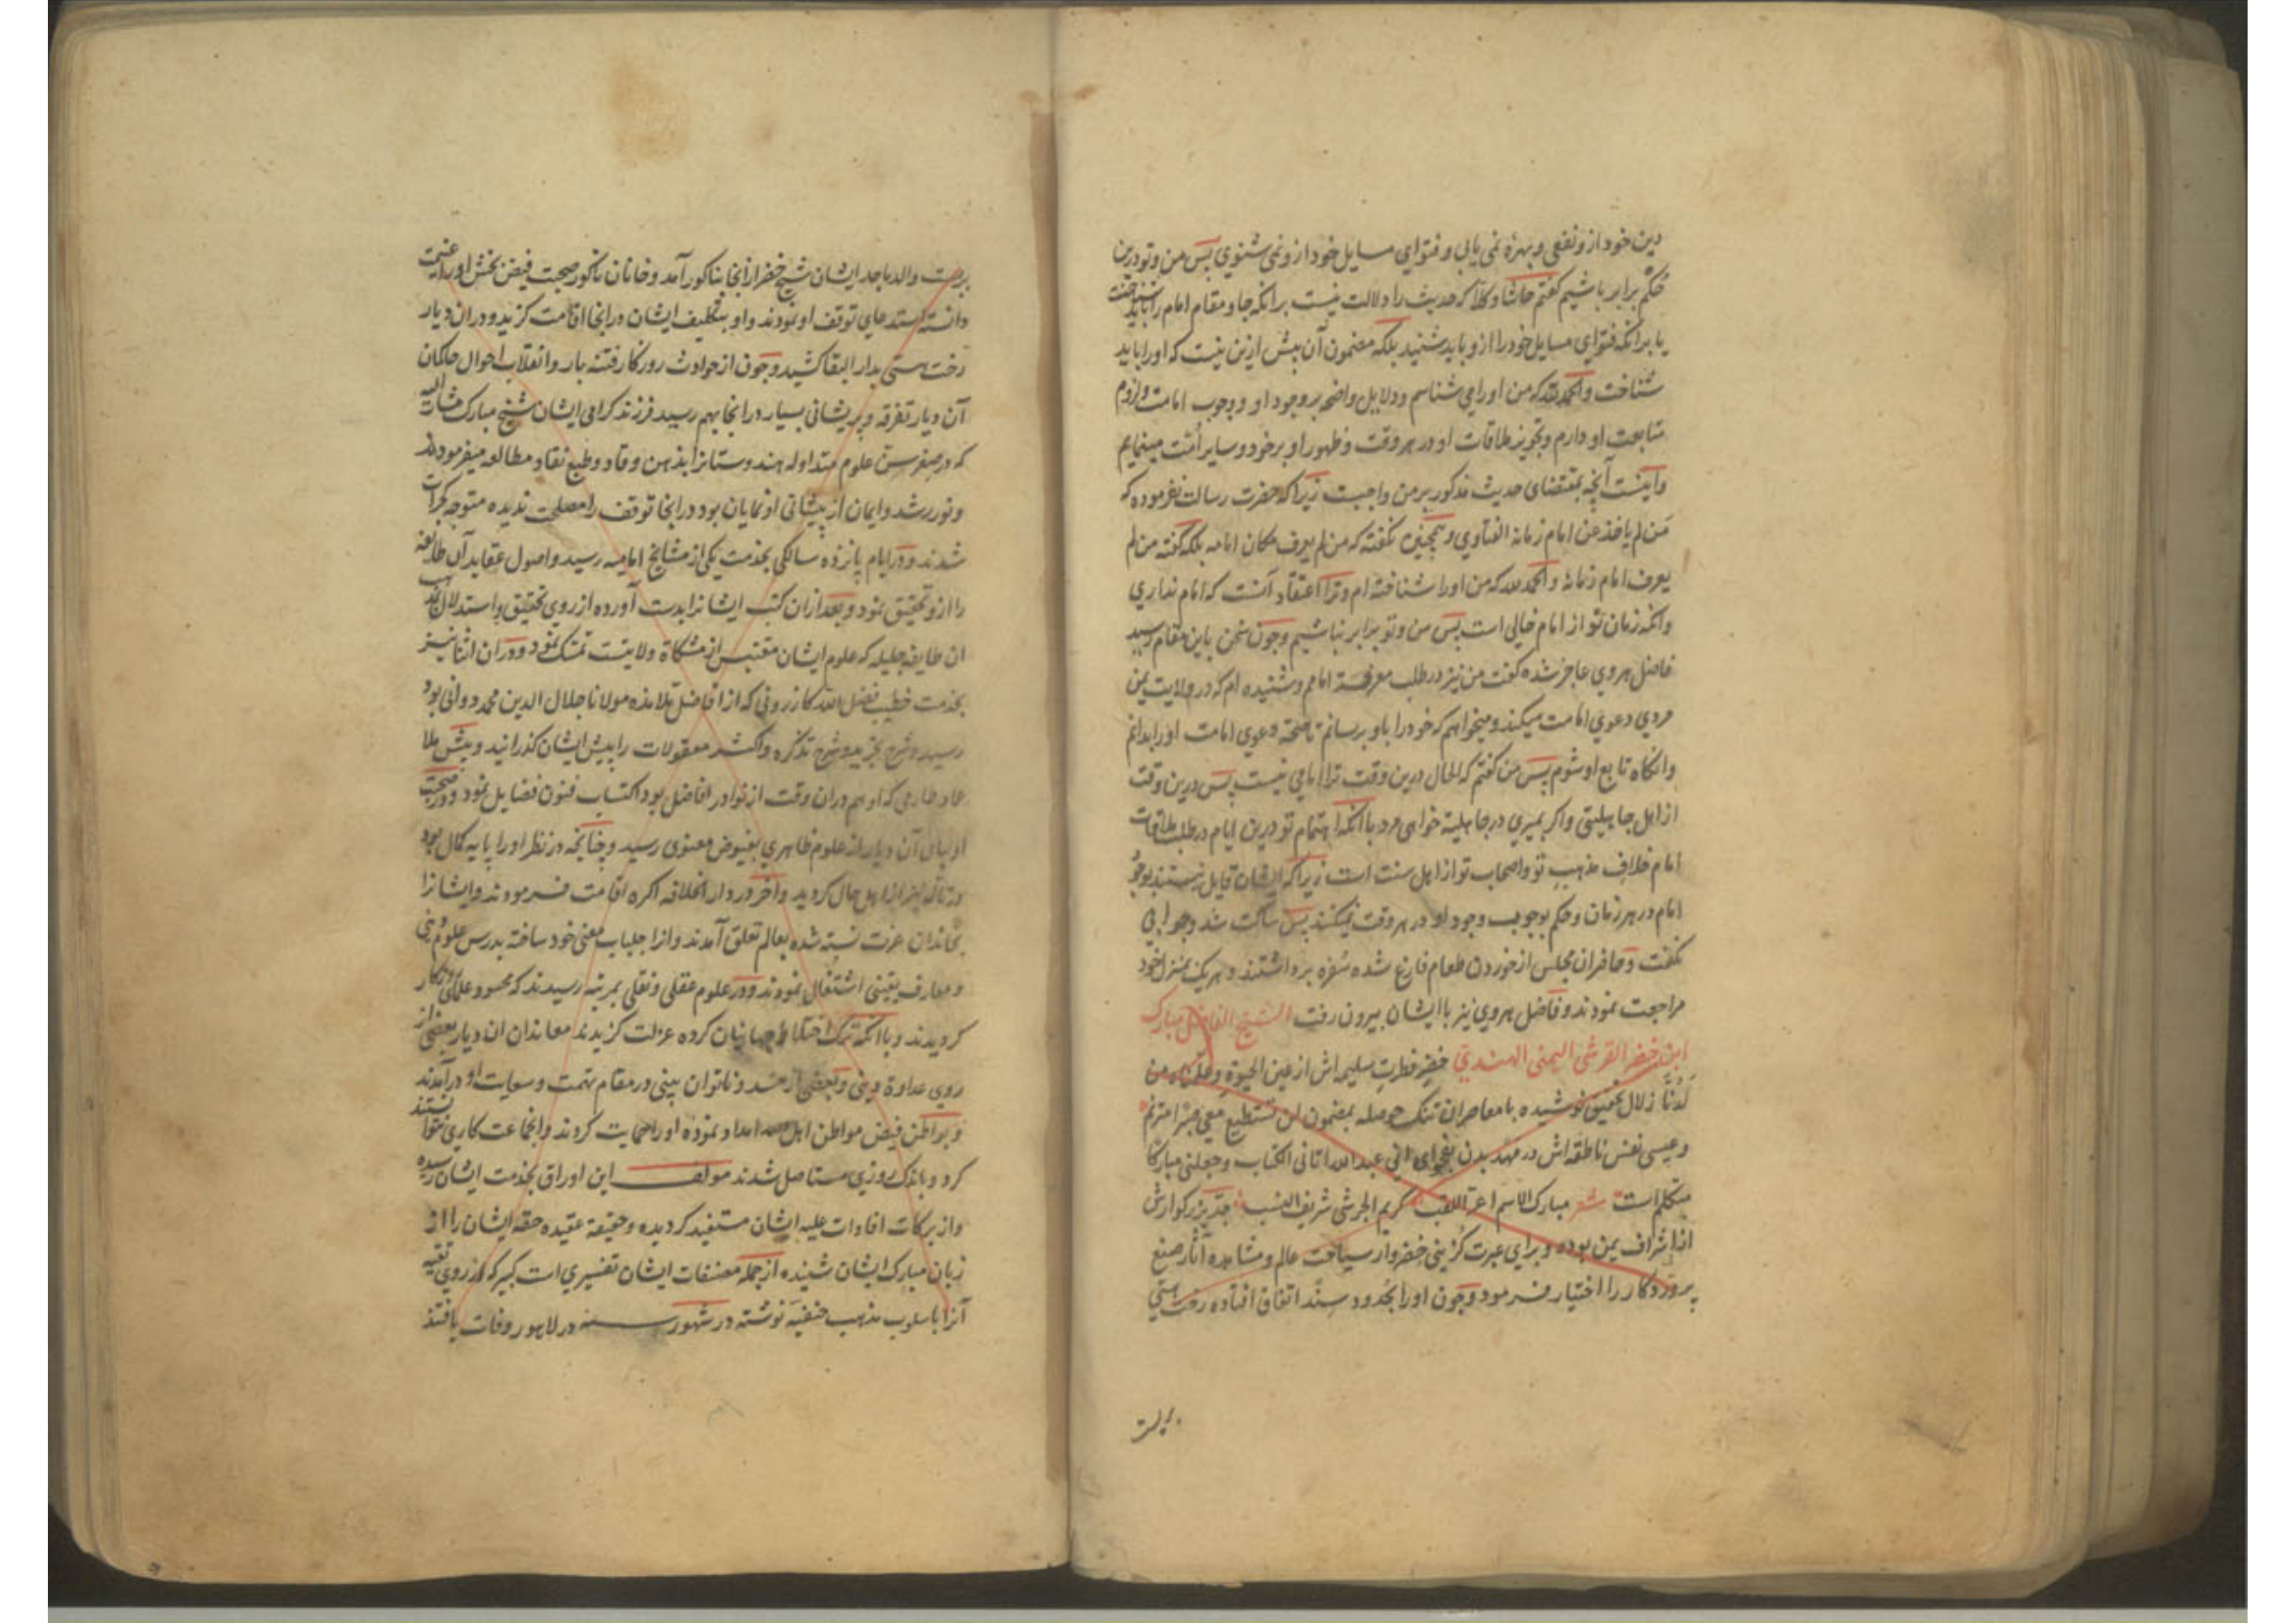 دین خود ازو نفعی و بهرهٔ نمی یابی و فتوای مسایل خود ازو نمی شنوی پس من و تو درین
حکم برابر باشیم گفتم حاشا و کلا که حدیث را دلالت نیست برانکه جا و مقام امام را باید شناخت
یا برانکه فتوای مسایل خود را ازو باید شنید بلکه مضمون آن بیش ازین نیست که او را باید
شناخت والحمد لله که من او را می شناسم و دلایل واضحه بر وجود او و وجوب امامت و لزوم
متابعت او دارم و تجویز ملاقات او در هر وقت و ظهور او بر خود و سایر امت مینمایم
و اینست آنچه بمقتضای حدیث مذکور بر من واجبست زیرا که حضرت رسالت نفرموده که
من لم یاخذ عن امام زمانه الفتاوی و همچنین نگفته که من لم یعرف مکان امامه بلکه گفته من لم
یعرف امام زمانه والحمد لله که من او را شناخته ام و ترا اعتقاد آنست که امام نداری
وانکه زمان تو از امام خالی است پس من و تو برابر نباشیم و چون سخن باین مقام رسید
فاضل هروی عاجز شده گفت من نیز در طلب معرفة امامم و شنیده ام که در ولایت یمن
مردی دعوی امامت میکند و میخواهم که خود را باو برسانم تا صحة دعوی امامت او را بدانم
وانگاه تابع او شوم پس من گفتم که الحال درین وقت ترا امامی نیست پس درین وقت
از اهل جاهلیتی و اگر بمیری در جاهلیة خواهی مرد با آنکه اهتمام تو درین ایام در طلب ملاقات
امام خلاف مذهب تو و اصحاب تو از اهل سنت است زیرا که ایشان قایل نیستند بوجود
امام در هر زمان و حکم بوجوب وجود او در هر وقت نمیکنند پس ساکت شد و جوابی
نگفت و حاضران مجلس از خوردن طعام فارغ شده سفره برداشتند و هر یک بمنزل خود
مراجعت نمودند و فاضل هروی نیز با ایشان بیرون رفت الشیخ الفاضل مبارک
ابن خضر القرشی الیمنی الهندی خضر فطرت سلیمه اش از عین الحیوة و علمناه من
لدنا زلال تحقیق نوشیده با معاصران تنک حوصله بمضمون لن تستطیع معی صبرا مترنم
و عیسی نفس ناطقه اش در مهد بدن بفحوای انی عبد الله اتانی الکتاب و جعلنی مبارکا
متکلم است شعر مبارک الاسم اغر اللقب کریم الجرشی شریف النسب جد بزرکوارش
از اشراف یمن بوده و برای عبرت کزینی خضروار سیاحت عالم و مشاهده آثار صنع
پروردکار را اختیار فرمود و چون او را بحدود سند اتفاق افتاده رخت هستی
بربست
بربست والد ماجد ایشان شیخ خضر از انجا بناکور آمد و خانان ناکور صحبت فیض بخش او را غنیمت
دانسته استدعای توقف او نمودند و او بتکلیف ایشان در انجا اقامت کزید و در ان دیار
رخت هستی بدار البقا کشید و چون از حوادث روزکار فتنه بار و انقلاب احوال حاکمان
آن دیار تفرقه و پریشانی بسیار در انجا بهم رسید فرزند کرامی ایشان شیخ مبارک مشار الیه
که در صغر سن علوم متداوله هندوستانرا بذهن وقاد و طبع نقاد مطالعه میفرمودند
و نور رشد و ایمان از پیشانی او نمایان بود در انجا توقف را مصلحت ندیده متوجه کجرات
شدند و در ایام پانزده سالکی بخدمت یکی از مشایخ امامیه رسید و اصول عقاید آن طایفه
را ازو تحقیق نمود و بعد ازان کتب ایشانرا بدست آورده از روی تحقیق و استدلال بمذهب
ان طایفه جلیله که علوم ایشان مقتبس از مشکاة ولایتست تمسک نمود و در ان اثنا نیز
بخدمت خطیب فضل الله کازرونی که از افاضل تلامذه مولانا جلال الدین محمد دوانی بود
رسید و شرح تجرید و شرح تذکره و اکثر معقولات را پیش ایشان کذرانید و پیش ملا
عماد طارمی که او هم در ان وقت از نوادر افاضل بود اکتساب فنون فضایل نمود و در صحبت
اولیای آن دیار از علوم ظاهری بفیوض معنوی رسید و چنانچه در نظر او را پایه کمال بود
در تاله نیز از اهل حال کردید و آخر در دار الخلافه اکره اقامت فرمودند و ایشانرا
بخاندان عزت نسبه شده بعالم تعلق آمدند و انرا جلباب معنی خود ساخته بدرس علوم دینی
و معارف یقینی اشتغال نمودند و در علوم عقلی و نقلی بمرتبه رسیدند که محسود علمای روزکار
کردیدند و با آنکه ترک اختلاط جهانیان کرده عزلت کزیدند معاندان ان دیار بعضی از
روی عداوة دینی و بعضی از حسد و ناتوان بینی در مقام تهمت و سعایت او درآمدند
و بواطن فیض مواطن اهل الله امداد نموده او را حمایت کردند و انجماعت کاری نتوانستند
کرد و باندک روزی مستاصل شدند مولف این اوراق بخدمت ایشان رسیده
و از برکات افادات علیه ایشان مستفید کردیده و حقیقة عقیده حقه ایشان را از
زبان مبارک ایشان شنیده از جمله مصنفات ایشان تفسیری است کبیر که از روی تقیه
آنرا باسلوب مذهب حنفیه نوشته در شهور سنه در لاهور وفات یافتند